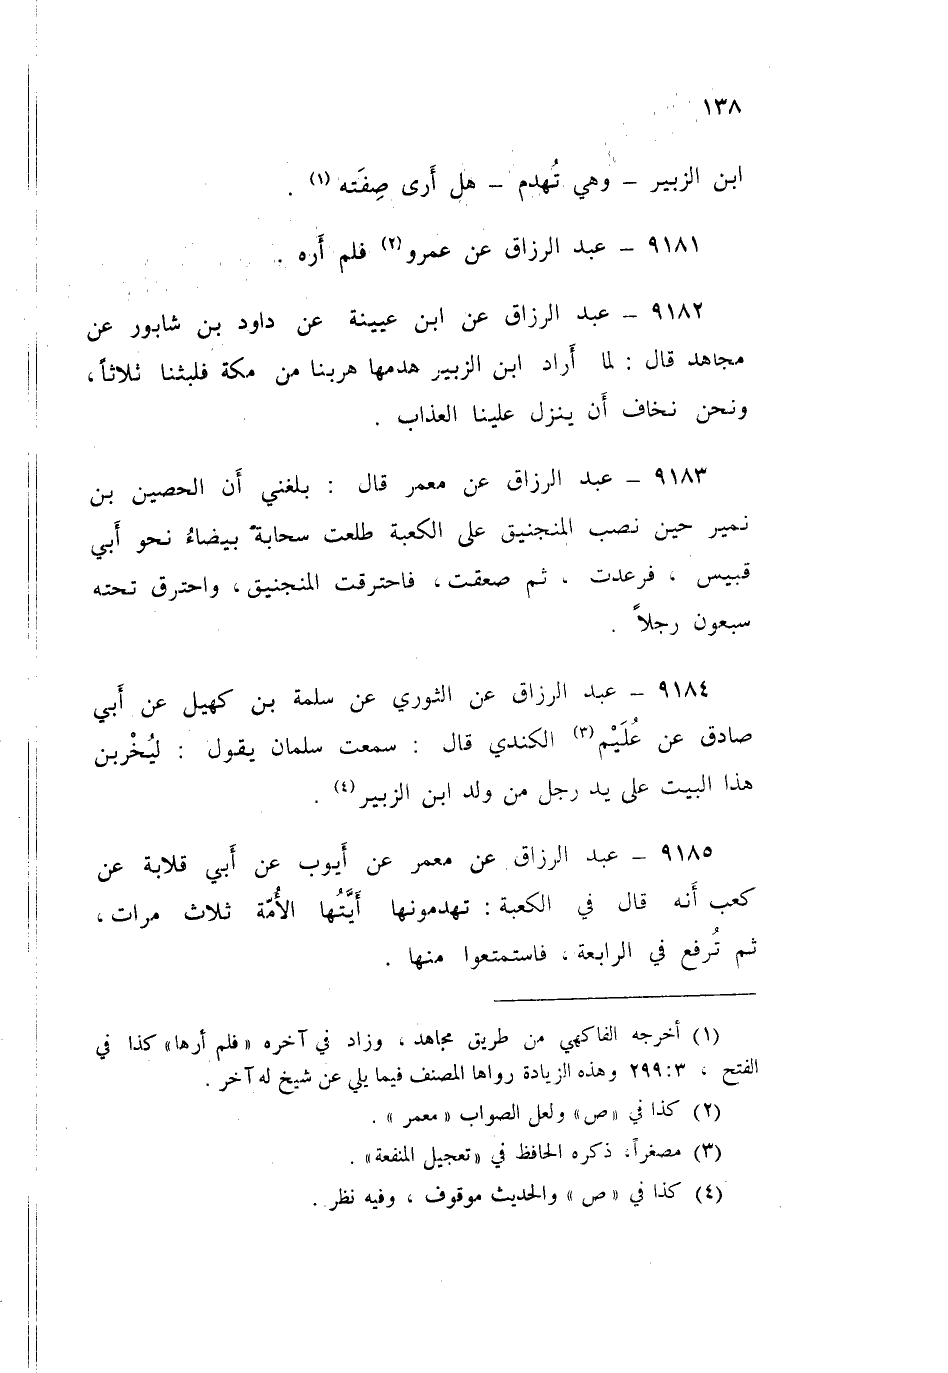 ١٣٨
ابن الزبير – وهي تُهدم – هل أَرى صِفَته (١) .
٩١٨١ – عبد الرزاق عن عمرو(٢) فلم أَره .
٩١٨٢ – عبد الرزاق عن ابن عيينة عن داود بن شابور عن
مجاهد قال : لما أَراد ابن الزبير هدمها هربنا من مكة فلبثنا ثلاثاً ،
ونحن نخاف أَن ينزل علينا العذاب .
٩١٨٣ – عبد الرزاق عن معمر قال : بلغني أَن الحصين بن
نمير حين نصب المنجنيق على الكعبة طلعت سحابةٌ بيضاءُ نحو أَبي
قبيس ، فرعدت ، ثم صعقت ، فاحترقت المنجنيق ، واحترق تحته
سبعون رجلاً .
٩١٨٤ – عبد الرزاق عن الثوري عن سلمة بن كهيل عن أَبي
صادق عن عُلَيْم(٣) الكندي قال : سمعت سلمان يقول : ليُخْربن
هذا البيت على يد رجل من ولد ابن الزبير(٤) .
٩١٨٥ – عبد الرزاق عن معمر عن أَيوب عن أَبي قلابة عن
كعب أَنه قال في الكعبة : تهدمونها أَيَّتُها الأُمّة ثلاث مرات ،
ثم تُرفع في الرابعة ، فاستمتعوا منها .
(١) أخرجه الفاكهي من طريق مجاهد ، وزاد في آخره «فلم أرها» كذا في
الفتح ، ٣:٢٩٩ وهذه الزيادة رواها المصنف فيما يلي عن شيخ له آخر .
(٢) كذا في «ص» ولعل الصواب «معمر» .
(٣) مصغراً، ذكره الحافظ في «تعجيل المنفعة» .
(٤) كذا في «ص» والحديث موقوف ، وفيه نظر .